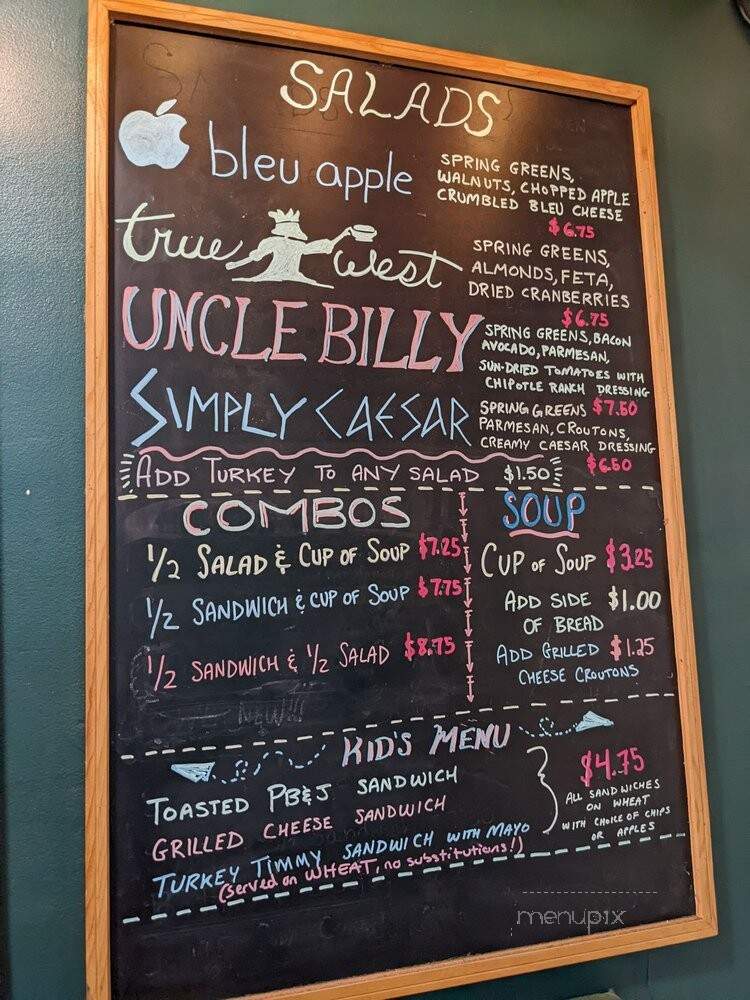 SALADS
bleu apple
SPRING GREENS,
WALNUTS, CHOPPED APPLE
CRUMBLED BLEU CHEESE
$6.75
true West
SPRING GREENS,
ALMONDS, FETA,
DRIED CRANBERRIES
$6.75
UNCLE BILLY
SPRING GREENS, BACON
AVOCADO, PARMESAN,
SUN-DRIED TOMATOES WITH
CHIPOTLE RANCH DRESSING
$7.50
SIMPLY CAESAR
SPRING GREENS
PARMESAN, CROUTONS,
CREAMY CAESAR DRESSING
$6.50
ADD TURKEY TO ANY SALAD $1.50
COMBOS
1/2 SALAD & CUP OF SOUP $7.25
1/2 SANDWICH & CUP OF SOUP $7.75
1/2 SANDWICH & 1/2 SALAD $8.75
NEW!!!
SOUP
CUP OF SOUP $3.25
ADD SIDE $1.00
OF BREAD
ADD GRILLED $1.25
CHEESE CROUTONS
KID'S MENU
TOASTED PB&J SANDWICH
GRILLED CHEESE SANDWICH
TURKEY TIMMY SANDWICH WITH MAYO
(served on WHEAT, no substitutions!)
$4.75
ALL SANDWICHES
ON WHEAT
WITH CHOICE OF CHIPS
OR APPLES
menupix